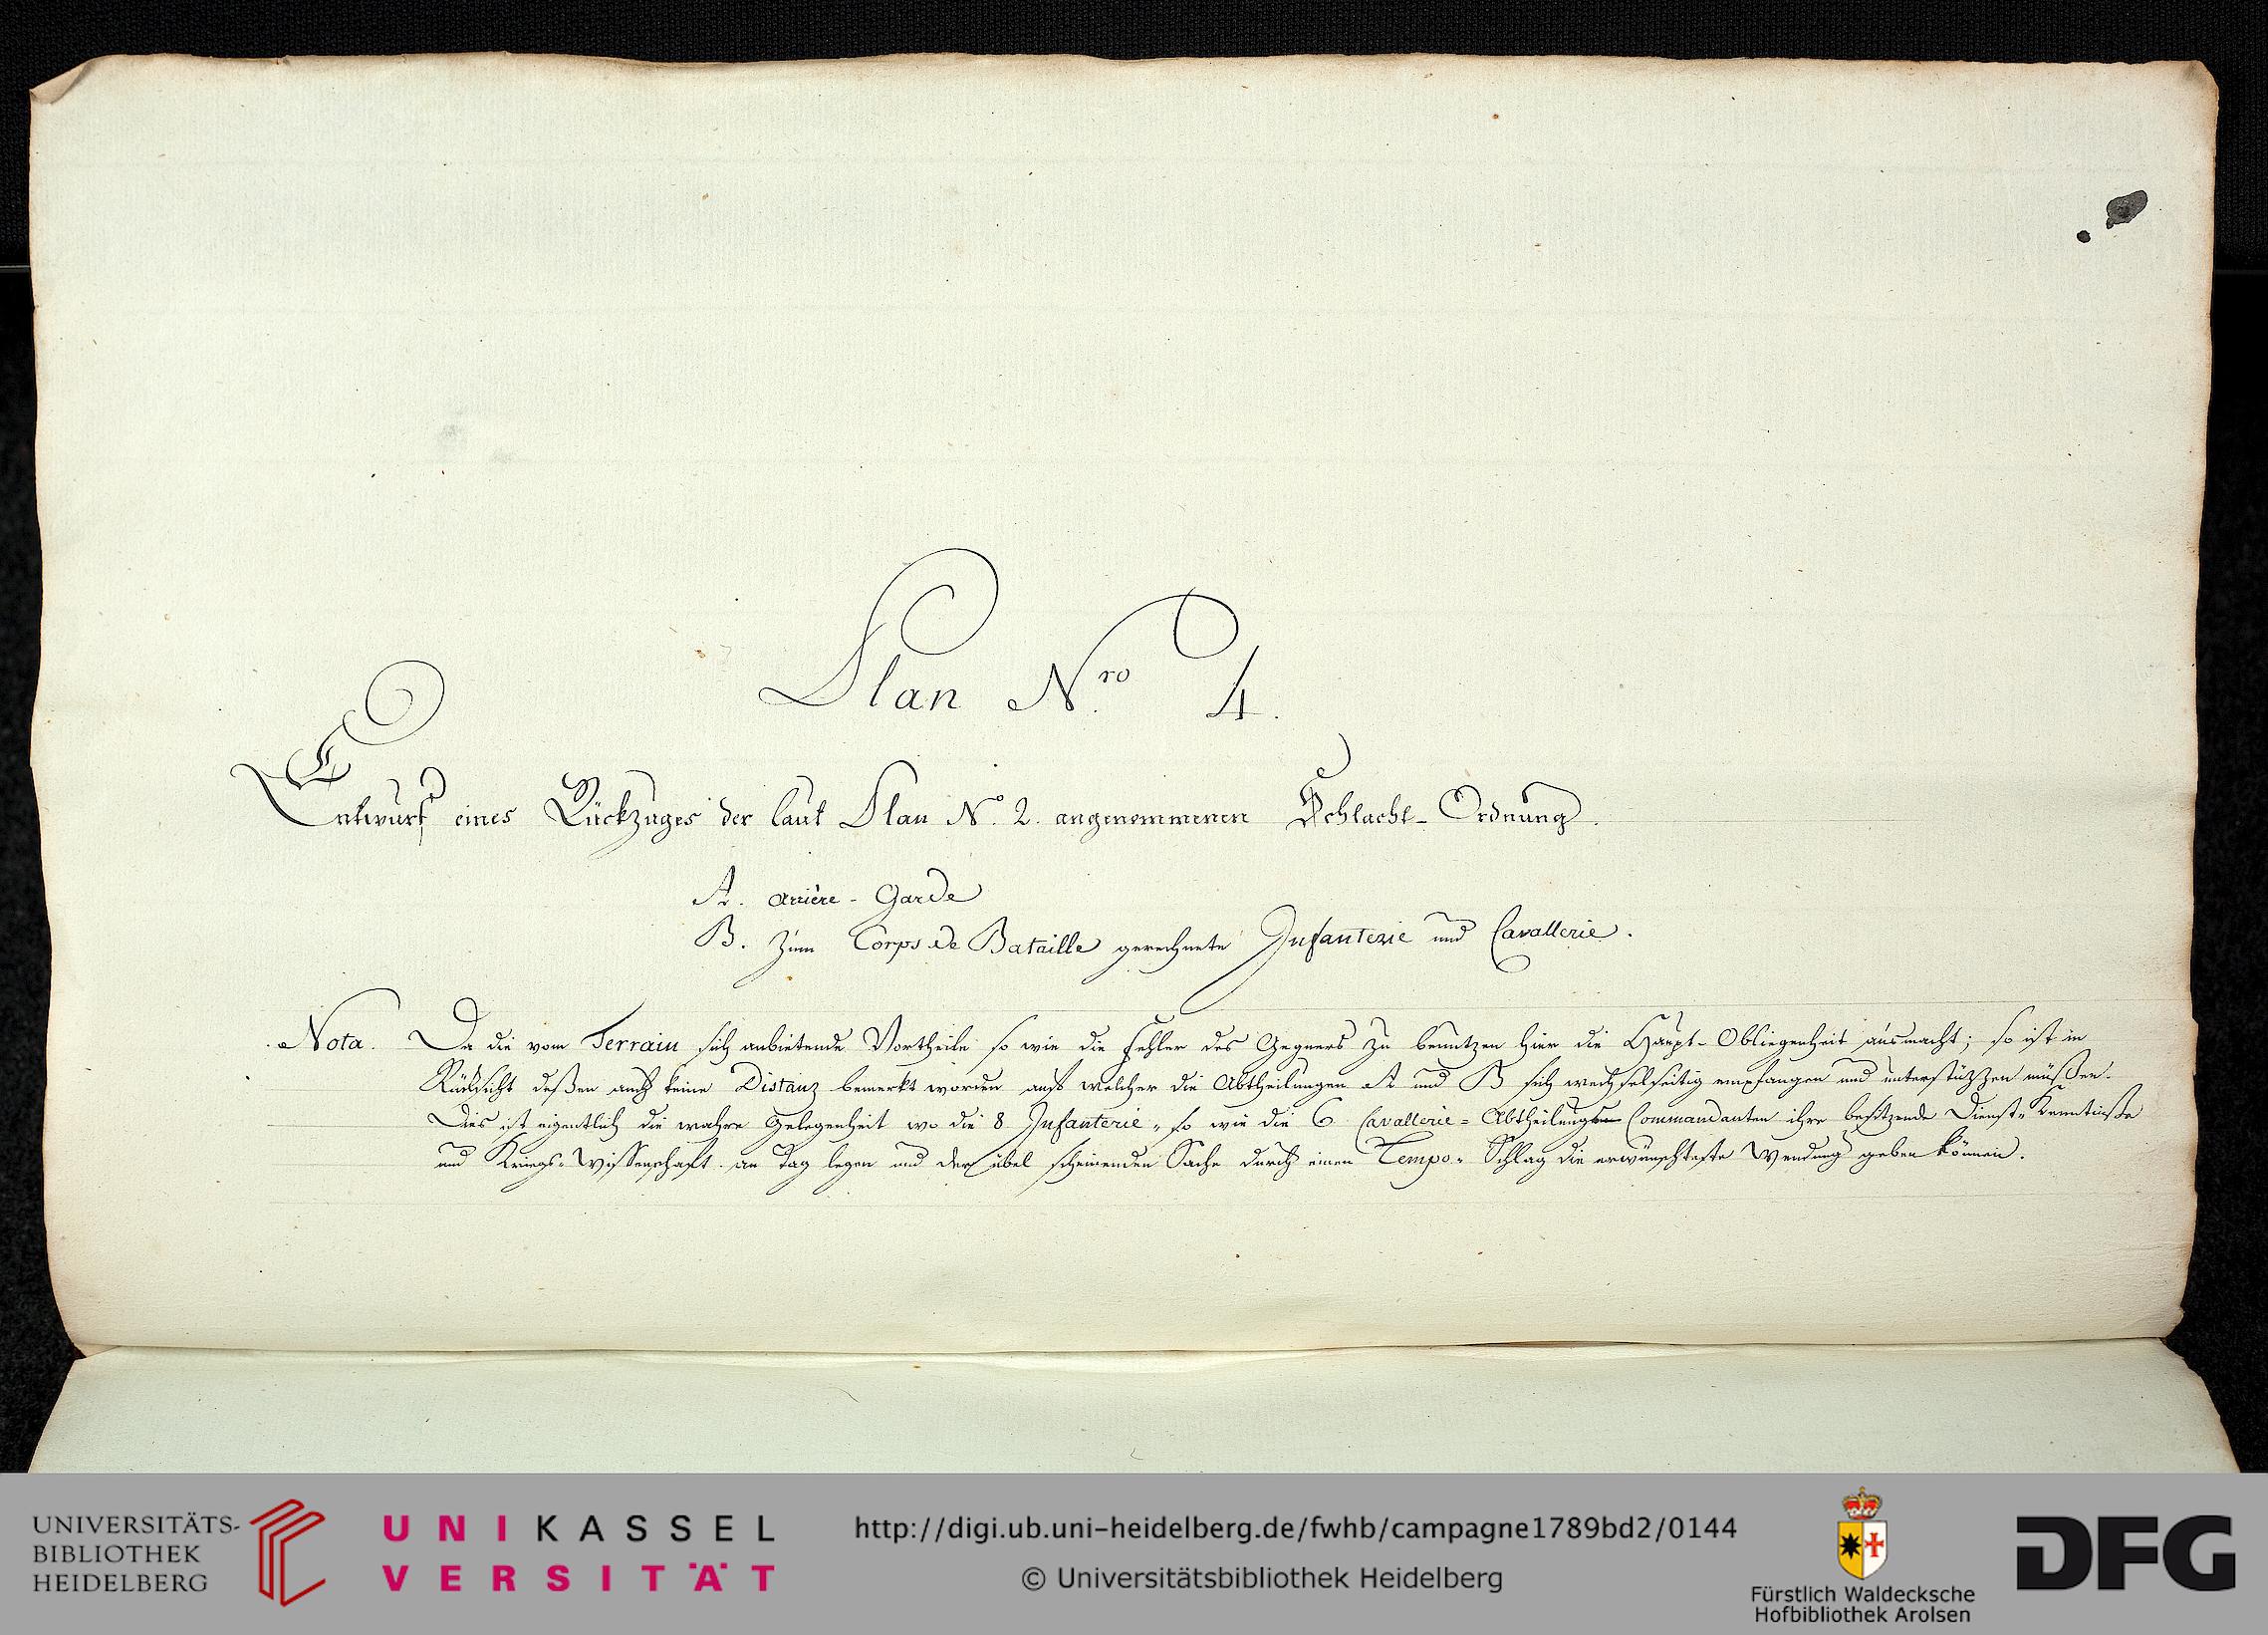 Plan Nro 4.
Entwurf eines Rückzuges der laut Plan No. 2. angenommenen Schlacht-Ordnung.
A. Arriere-Garde
B. Zum Corps de Bataille gerechnete Infanterie und Cavallerie.
Nota. Da die vom Terrain sich anbietende Vortheile so wie die Fehler des Gegners zu benutzen hier die Haupt-Obliegenheit ausmacht; so ist in
Rücksicht deßen auch keine Distanz bemerkt worden auf welcher die Abtheilungen A und B sich wechselseitig empfangen und unterstützen müßen.
Dies ist eigentlich die wahre Gelegenheit wo die 8 Infanterie- so wie die 6 Cavallerie-Abtheilungs Commandanten ihre besitzende Dienst-Kenntniße
und Kriegs-Wissenschaft an Tag legen und der übel scheinenden Sache durch einen Tempo-Schlag die erwünschteste Wendung geben können.
UNIVERSITÄTS-
BIBLIOTHEK
HEIDELBERG
UNIKASSEL
VERSITÄT
http://digi.ub.uni-heidelberg.de/fwhb/campagne1789bd2/0144
© Universitätsbibliothek Heidelberg
Fürstlich Waldecksche
Hofbibliothek Arolsen
DFG